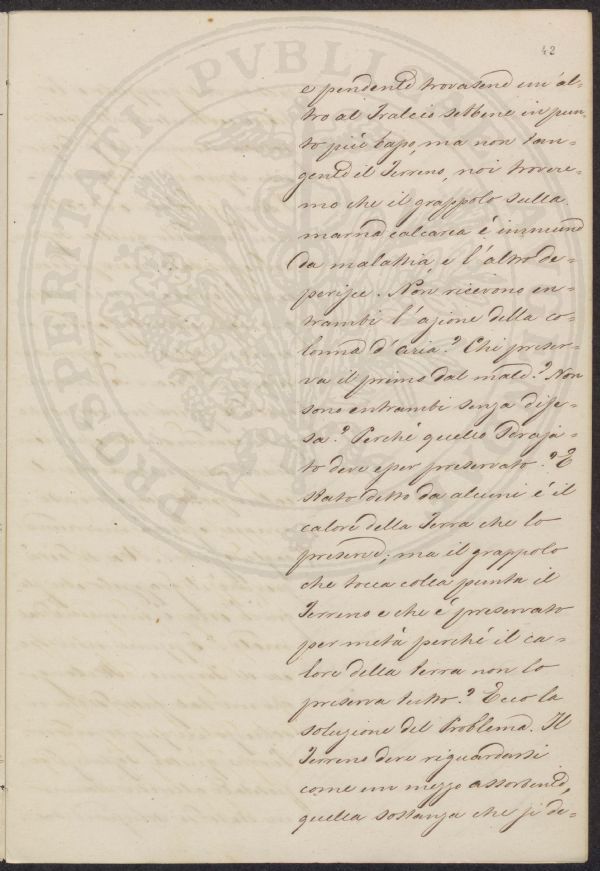 42
e pendente trovasene un'al=
tro al Tralcio sebbene in pun=
to più basso, ma non tan=
gente il Terreno, noi trovere=
mo che il grappolo sulla
marna calcarea è immune
da malattia, e l'altro de=
perisce. Non ricevono en=
trambi l'azione della co=
lonna d'aria? Chi preser=
va il primo dal male? Non
sono entrambi senza dife=
sa? Perché quello sdraja=
to deve esser preservato? È
stato detto da alcuni è il
calore della Terra che lo
preserva; ma il grappolo
che tocca colla punta il
Terreno e che è preservato
per metà perché il ca=
lore della terra non lo
preserva tutto? Ecco la
soluzione del Problema. Il
Terreno deve riguardarsi
come un mezzo assorbente,
quella sostanza che si de=
PROSPERITATI PVBLICAE